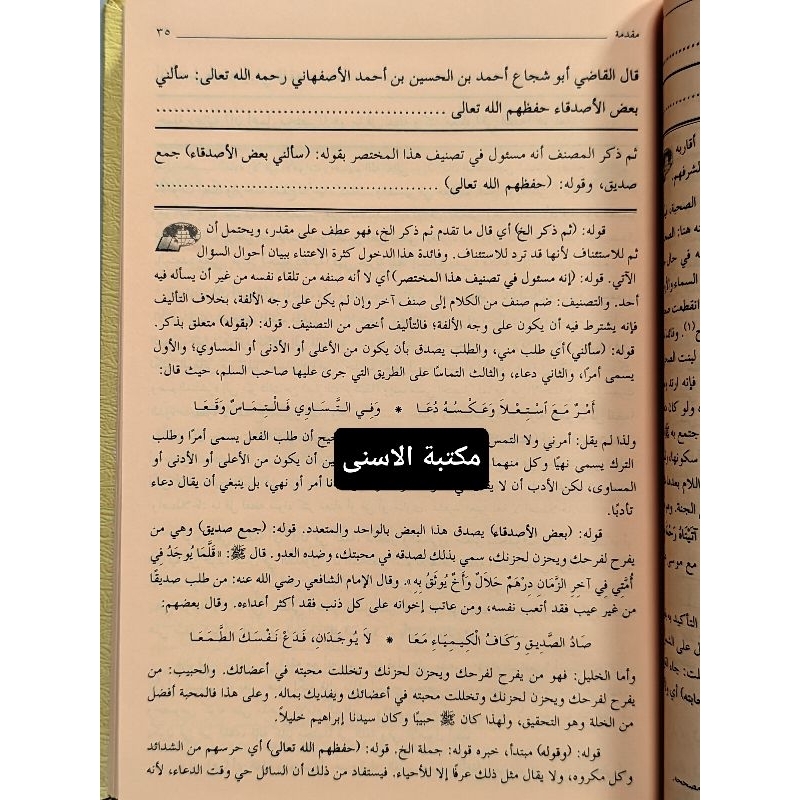 مقدمة ٣٥
قال القاضي أبو شجاع أحمد بن الحسين بن أحمد الأصفهاني رحمه الله تعالى: سألني
بعض الأصدقاء حفظهم الله تعالى ................................................
ثم ذكر المصنف أنه مسئول في تصنيف هذا المختصر بقوله: (سألني بعض الأصدقاء) جمع
صديق، وقوله: (حفظهم الله تعالى) ................................................
قوله: (ثم ذكر الخ) أي قال ما تقدم ثم ذكر الخ، فهو عطف على مقدر، ويحتمل أن
ثم للاستئناف لأنها قد ترد للاستئناف. وفائدة هذا الدخول كثرة الاعتناء ببيان أحوال السؤال
الآتي. قوله: (إنه مسئول في تصنيف هذا المختصر) أي لا أنه صنفه من تلقاء نفسه من غير أن يسأله فيه
أحد. والتصنيف: ضم صنف من الكلام إلى صنف آخر وإن لم يكن على وجه الألفة، بخلاف التأليف
فإنه يشترط فيه أن يكون على وجه الألفة؛ فالتأليف أخص من التصنيف. قوله: (بقوله) متعلق بذكر.
قوله: (سألني) أي طلب مني، والطلب يصدق بأن يكون من الأعلى أو الأدنى أو المساوي؛ والأول
يسمى أمرًا، والثاني دعاء، والثالث التماسًا على الطريق التي جرى عليها صاحب السلم، حيث قال:
أَمْرٌ مَعَ اسْتِعْلَا وَعَكْسُهُ دُعَا * وَفِي التَّسَاوِي فَالْتِمَاسٌ وَقَعَا
ولذا لم يقل: أمرني ولا التمس حيح أن طلب الفعل يسمى أمرًا وطلب
الترك يسمى نهيًا وكل منهما ين أن يكون من الأعلى أو الأدنى أو
المساوى، لكن الأدب أن لا نا أمر أو نهي، بل ينبغي أن يقال دعاء
تأدبًا.
مكتبة الاسنى
قوله: (بعض الأصدقاء) يصدق هذا البعض بالواحد والمتعدد. قوله: (جمع صديق) وهي من
يفرح لفرحك ويحزن لحزنك، سمي بذلك لصدقه في محبتك، وضده العدو. قال ﷺ: «قَلَّمَا يُوجَدُ فِي
أُمَّتِي فِي آخِرِ الزَّمَانِ دِرْهَمٌ حَلَالٌ وَأَخٌ يُوثَقُ بِهِ». وقال الإمام الشافعي رضي الله عنه: من طلب صديقًا
من غير عيب فقد أتعب نفسه، ومن عاتب إخوانه على كل ذنب فقد أكثر أعداءه. وقال بعضهم:
صَادُ الصَّدِيقِ وَكَافُ الْكِيمِيَاءِ مَعَا * لَا يُوجَدَانِ، فَدَعْ نَفْسَكَ الطَّمَعَا
وأما الخليل: فهو من يفرح لفرحك ويحزن لحزنك وتخللت محبته في أعضائك. والحبيب: من
يفرح لفرحك ويحزن لحزنك وتخللت محبته في أعضائك ويفديك بماله. وعلى هذا فالمحبة أفضل
من الخلة وهو التحقيق، ولهذا كان ﷺ حبيبًا وكان سيدنا إبراهيم خليلاً.
قوله: (وقوله) مبتدأ، خبره قوله: جملة الخ. قوله: (حفظهم الله تعالى) أي حرسهم من الشدائد
وكل مكروه، ولا يقال مثل ذلك عرفًا إلا للأحياء. فيستفاد من ذلك أن السائل حي وقت الدعاء، لأنه